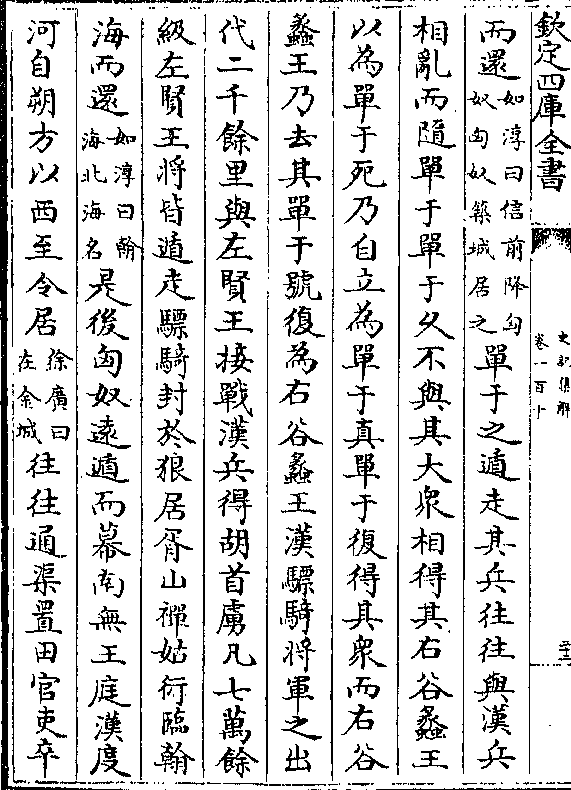 欽定四庫全書
史記集解
卷一百十
而還如淳曰信前降匈奴匈奴築城居之單于之遁走其兵往往與漢兵
相亂而隨單于單于久不與其大衆相得其右谷蠡王
以為單于死乃自立為單于真單于復得其衆而右谷
蠡王乃去其單于號復為右谷蠡王漢驃騎將軍之出
代二千餘里與左賢王接戰漢兵得胡首虜凡七萬餘
級左賢王將皆遁走驃騎封於狼居胥山禪姑衍臨翰
海而還如淳曰翰海北海名是後匈奴遠遁而幕南無王庭漢度
河自朔方以西至令居徐廣曰在金城往往通渠置田官吏卒